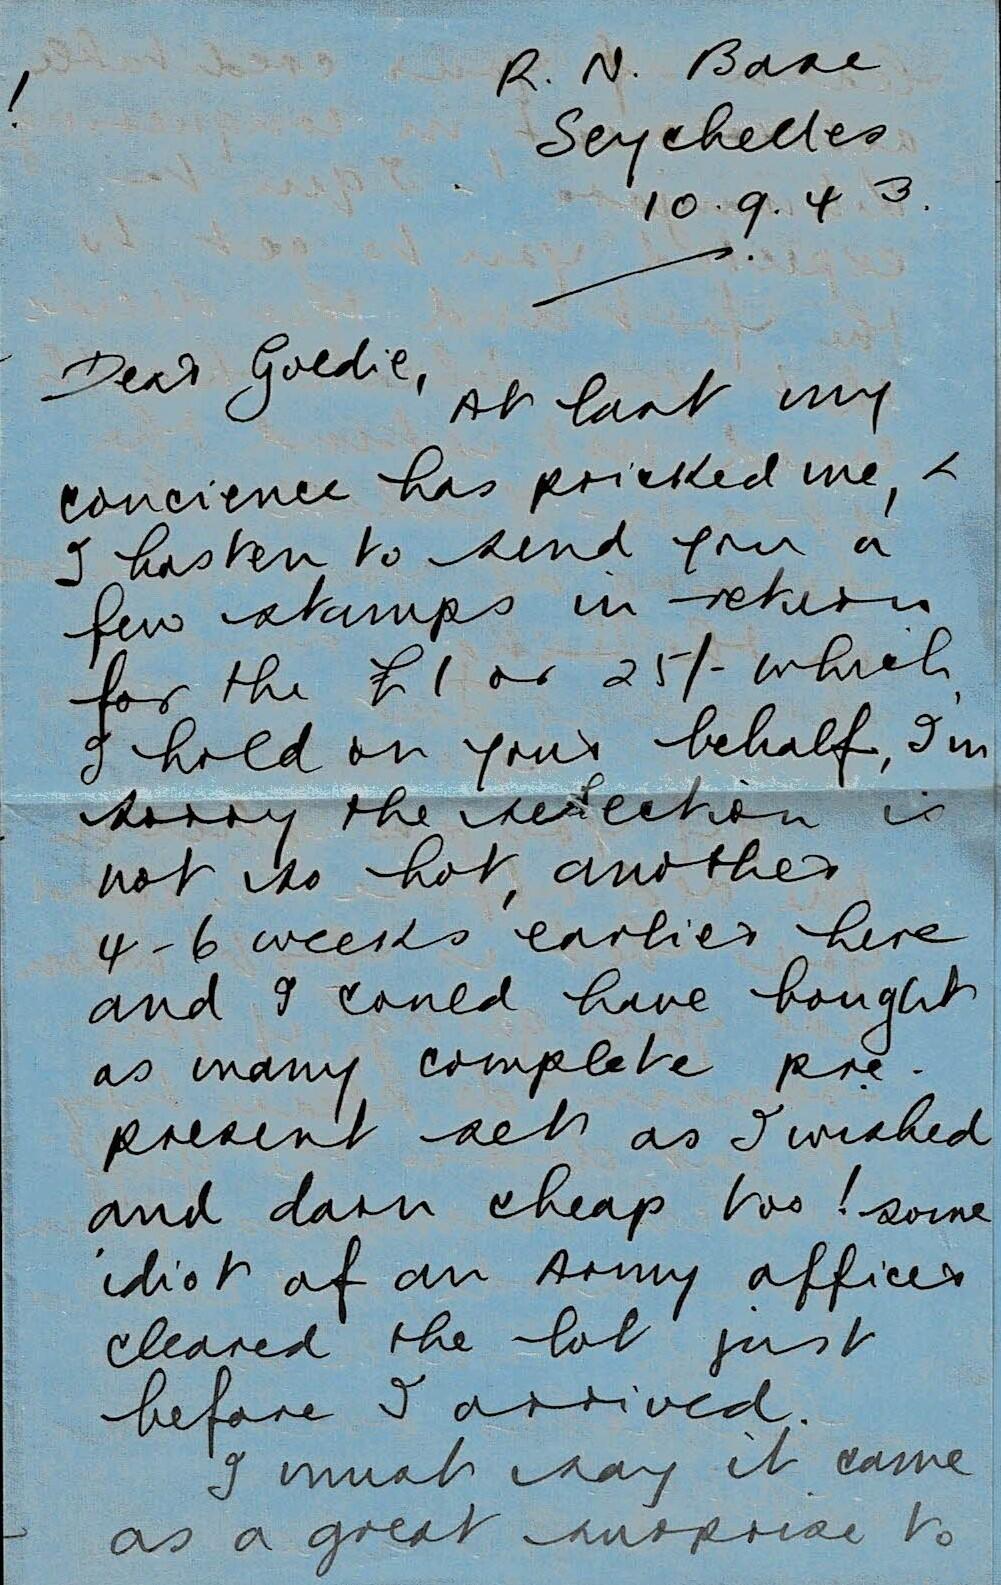 !
R. N. Base
Seychelles
10.9.43.
Dear Goldie,
At last my
concience has pricked me, &
I hasten to send you a
few stamps in return
for the £1 or 25/- which
I hold on your behalf, I'm
sorry the selection is
not so hot, another
4-6 weeks earlier here
and I could have bought
as many complete pre-
present sets as I wished
and darn cheap too! some
idiot of an Army officer
cleared the lot just
before I arrived.
I must say it came
as a great surprise to